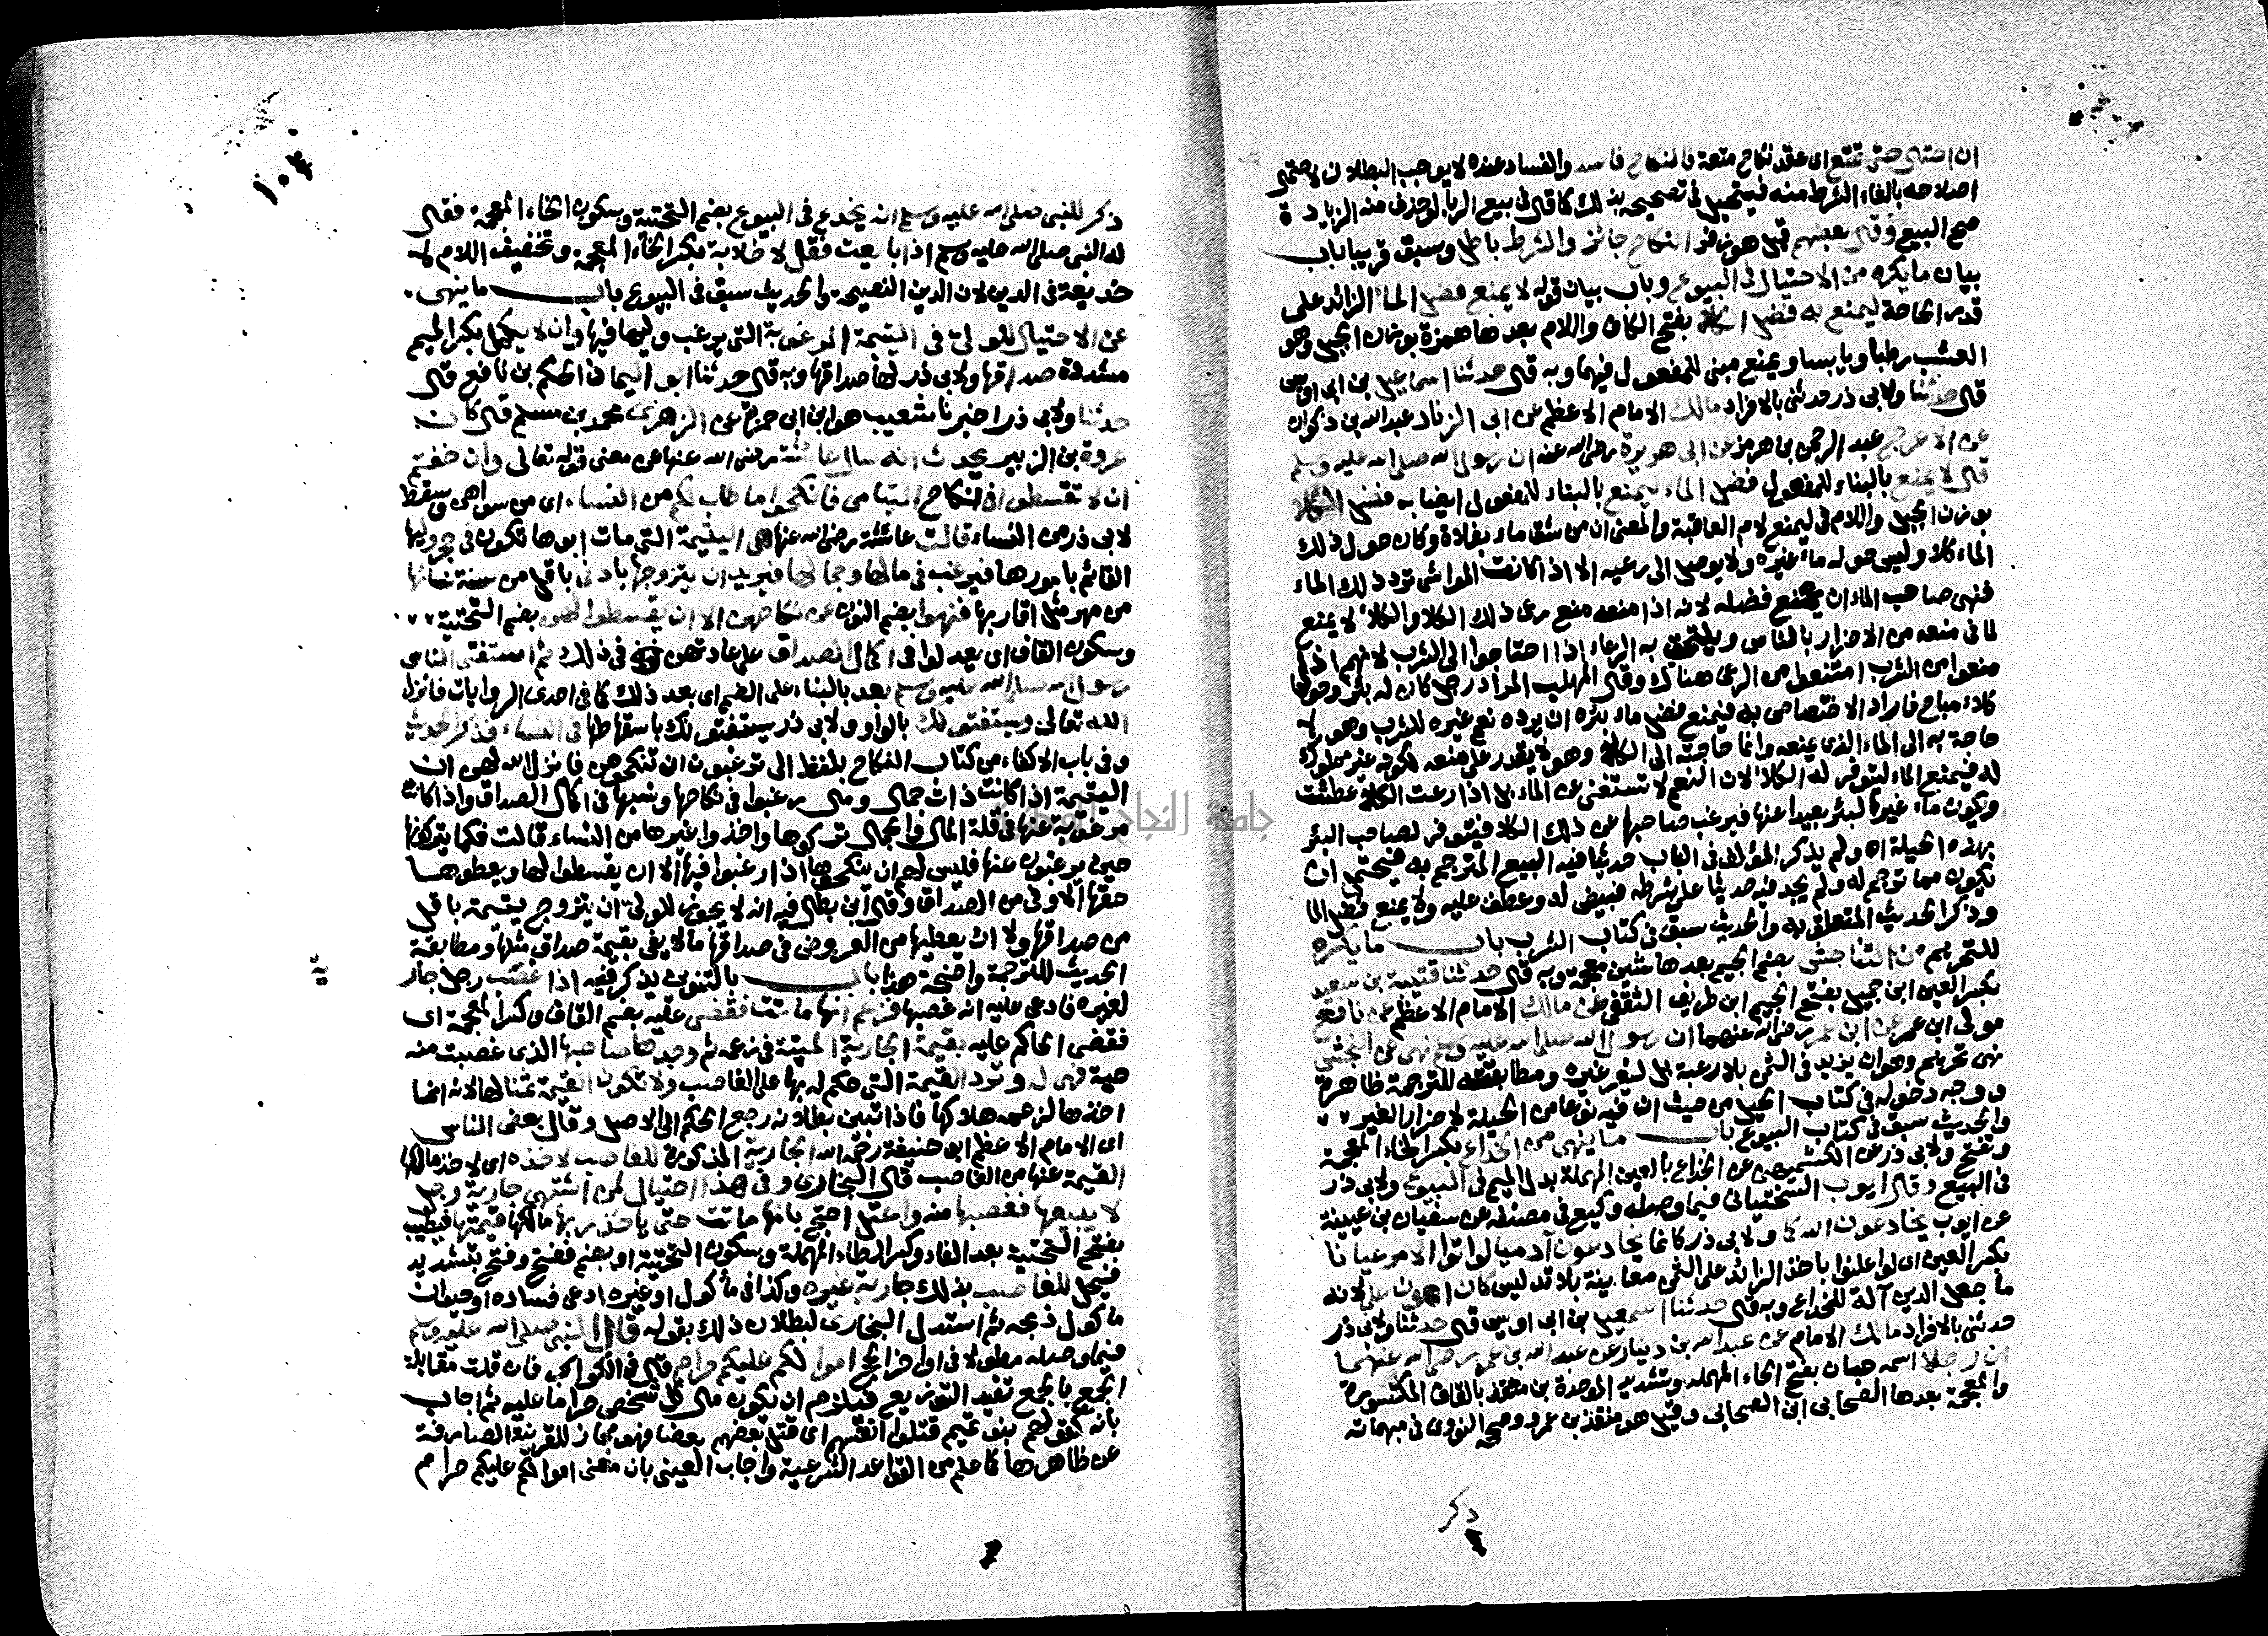 ان احتال حتى تمتع اى عقد نكاح متعة فالنكاح فاسد والفساد عنده لا يوجب البطلان لاحتمال
اصلاحه بالغاء الشرط منه فيتحيل فى تصحيحه بذلك كما قال فى بيع الربا لو حذف منه الزيادة
صح البيع وقال بعضهم قيل هو زفر النكاح جائز والشرط باطل وسبق قريبا باب
بيان ما يكره من الاحتيال فى البيوع وباب بيان قوله لا يمنع فضل الماء الزائد على
قدر الحاجة ليمنع به فضل الكلأ بفتح الكاف واللام بعدها همزة بوزن الجبل وهو
العشب رطبا ويابسا ويمنع مبنى للمفعول فيهما وبه قال حدثنا اسماعيل بن ابى اويس
قال حدثنا ولابى ذر حدثنى بالافراد مالك الامام الاعظم عن ابى الزناد عبد الله بن ذكوان
عن الاعرج عبد الرحمن بن هرمز عن ابى هريرة رضى الله عنه ان رسول الله صلى الله عليه وسلم
قال لا يمنع بالبناء للمفعول فضل الماء ليمنع بالبناء للمفعول ايضا به فضل الكلأ
بوزن الجبل واللام فى ليمنع لام العاقبة والمعنى ان من شق ماء بفلاة وكان حول ذلك
الماء كلأ وليس حوله ماء غيره ولا يوصل الى رعيه الا اذا كانت المواشى ترد ذلك الماء
فنهى صاحب الماء ان يمنع فضله لانه اذا منعه منع رعى ذلك الكلأ والكلأ لا يمنع
لما فى منعه من الاضرار بالناس ويلتحق به الرعاء اذا احتاجوا الى الشرب لانهم اذا
منعوا من الشرب امتنعوا من الرعى هناك وقال المهلب المراد رجل كان له بئر وحولها
كلأ مباح فاراد الاختصاص به فيمنع فضل ماء بئره ان يرده نعم غيره للشرب وهو لا
حاجة به الى الماء الذى يمنعه وانما حاجته الى الكلأ وهو لا يقدر على منعه لكونه غير مملوك
له فيمنع الماء ليتوفر له الكلأ لان النعم لا تستغنى عن الماء بل اذا رعت الكلأ عطشت
ويكون ماء غير البئر بعيدا عنها فيرغب صاحبها عن ذلك الكلأ فيتوفر لصاحب البئر
بهذه الحيلة اه ولم يذكر المؤلف فى الباب حديثا فيه البيع المترجم به فيحتمل ان
يكون مما ترجم له ولم يجد فيه حديثا على شرطه فبيض له وعطف عليه ولا يمنع فضل الما
وذكر الحديث المتعلق به والحديث سبق فى كتاب الشرب باب ما يكره
للتحريم من التناجش بضم الجيم بعدها شين معجمة وبه قال حدثنا قتيبة بن سعيد
بكسر العين ابن جميل بفتح الجيم ابن طريف الثقفى عن مالك الامام الاعظم عن نافع
مولى ابن عمر عن ابن عمر رضى الله عنهما ان رسول الله صلى الله عليه وسلم نهى عن النجش
نهى تحريم وهو ان يزيد فى الثمن بلا رغبة بل ليغر غيره ومطابقته للترجمة ظاهرة
ووجه دخوله فى كتاب الحيل من حيث ان فيه نوعا من الحيلة لاضرار الغير
والحديث سبق فى كتاب البيوع باب ما ينهى من الخداع بكسر الخاء المعجمة
وتفتح ولابى ذر عن الكشميهنى عن الخداع بالعين المهملة بدل الميم فى البيوع ولابى ذر
فى البيع وقال ايوب السختيانى فيما وصله وكيع فى مصنفه عن سفيان بن عيينة
عن ايوب يخادعون الله كما ولابى ذر كانما يخادعون آدميا لو اتوا الامر عيانا
بكسر العين اى لو اعلنوا باخذ الزائد على الثمن معاينة بلا تدليس كان اهون على لانه
ما جعل الدين آلة للخداع وبه قال حدثنا اسمعيل بن ابى اويس قال حدثنا ولابى ذر
حدثنى بالافراد مالك الامام عن عبد الله بن دينار عن عبد الله بن عمر رضى الله عنهما
ان رجلا اسمه حبان بفتح الحاء المهملة وتشديد الموحدة بن منقذ بالقاف المكسورة
والمعجمة بعدها الصحابى ابن الصحابى وقيل هو منقذ بن عمرو وصححه النووى فى مبهماته
ذكر
١٠٣
ذكر للنبى صلى الله عليه وسلم انه يخدع فى البيوع بضم التحتية وسكون الخاء المعجمة فقال
له النبى صلى الله عليه وسلم اذا بايعت فقل لا خلابة بكسر الخاء المعجمة وتخفيف اللام لا
خديعة فى الدين لان الدين النصيحة والحديث سبق فى البيوع باب ما ينهى
عن الاحتيال للولى فى اليتيمة المرغوبة التى يرغب وليها فيها وان لا يكمل بكسر الميم
مشددة صداقها ولابى ذر لها صداقها وبه قال حدثنا ابو اليمان الحكم بن نافع قال
حدثنا ولابى ذر اخبرنا شعيب هو ابن ابى حمزة عن الزهرى محمد بن مسلم قال كان
عروة بن الزبير يحدث انه سال عائشة رضى الله عنها عن معنى قوله تعالى وان خفتم
ان لا تقسطوا فى نكاح اليتامى فانكحوا ما طاب لكم من النساء اى من سواهن وسقط
لابى ذر من النساء قالت عائشة رضى الله عنها هى اليتيمة التى مات ابوها تكون فى حجر وليها
القائم بامورها فيرغب فى مالها وجمالها فيريد ان يتزوجها بادنى باقل من سنة نسائها
من مهر مثل اقاربها فنهوا بضم النون عن نكاحهن الا ان يقسطوا لهن بضم التحتية
وسكون القاف اى يعدلوا فى اكمال الصداق على عادتهن فى ذلك ثم استفتى الناس
رسول الله صلى الله عليه وسلم بعد بالبناء على الضم اى بعد ذلك كما فى احدى الروايات فانزل
الله تعالى ويستفتونك بالواو ولابى ذر يستفتونك باسقاطها فى النساء فذكر الحديث
وفى باب الاكفاء من كتاب النكاح بلفظ الى ترغبون ان تنكحوهن فانزل الله لهن ان
اليتيمة اذا كانت ذات جمال ومال رغبوا فى نكاحها ونسبها فى اكمال الصداق واذا كانت
مرغوبة عنها فى قلة المال والجمال تركوها واخذوا غيرها من النساء قالت فكما يتركونها
حين يرغبون عنها فليس لهم ان ينكحوها اذا رغبوا فيها الا ان يقسطوا لها ويعطوها
حقها الاوفى من الصداق وقال ابن بطال فيه انه لا يجوز للولى ان يتزوج يتيمة باقل
من صداقها ولا ان يعطيها من العروض فى صداقها ما لا يفى بقيمة صداق مثلها ومطابقة
الحديث للترجمة واضحة هذا باب بالتنوين يذكر فيه اذا غصب رجل جار
ية
لغيره فادعى عليه انه غصبها فزعم انها ماتت فقضى عليه بضم القاف وكسر المعجمة اى
فقضى الحاكم عليه بقيمة الجارية الميتة فى زعمه ثم وجدها صاحبها الذى غصبت منه
حية فهى له وترد القيمة التى حكم له بها على الغاصب ولا تكون القيمة ثمنا لها لانه انما
اخذها لزعمه هلاكها فاذا تبين بطلانه رجع الحكم الى الاصل وقال بعض الناس
اى الامام الاعظم ابو حنيفة رحمه الله الجارية المذكورة للغاصب لاخذه اى لاخذ مالكها
القيمة عنها من الغاصب قال البخارى وفى هذا احتيال لمن اشتهى جارية رجل
لا يبيعها فغصبها منه واعتل احتج بانها ماتت حتى ياخذ ربها مالكها قيمتها فيطيب
بفتح التحتية بعد الفاء وكسر الطاء المهملة وسكون التحتية او بضم ففتح وفتح بتشديد
فيحل للغاصب بذلك جارية غيره وكذا فى مأكول او غيره ادعى فساده او حيوان
مأكول ذبحه ثم استدل البخارى لبطلان ذلك بقوله قال النبى صلى الله عليه وسلم
فيما وصله مطولا فى اواخر الحج اموالكم عليكم حرام قال فى الكواكب فان قلت مقابلة
الجمع بالجمع تفيد التوزيع فيلزم ان يكون مال كل شخص حراما عليه ثم اجاب
بانه كقولهم بنو تميم قتلوا انفسهم اى قتل بعضهم بعضا فهو مجاز للقرينة الصارفة
عن ظاهرها كما علم من القواعد الشرعية واجاب العينى بان معنى اموالكم عليكم حرام
جامعة النجاح الوطنية